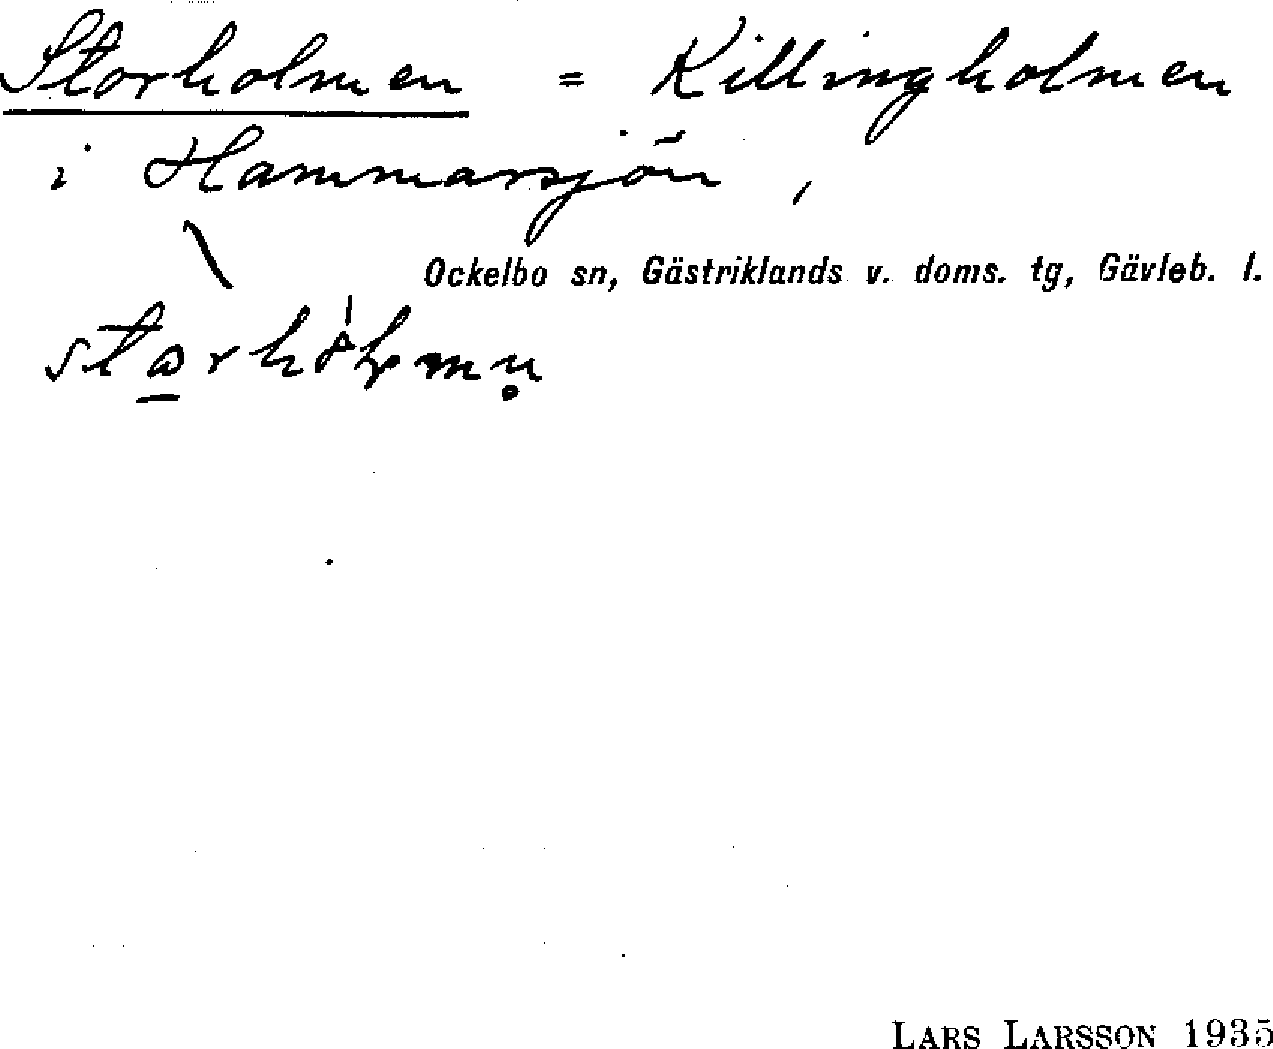 Storholmen = Killingholmen
i Hammarsjön,
Ockelbo sn, Gästriklands v. doms. tg, Gävleb. l.
LARS LARSSON 1935